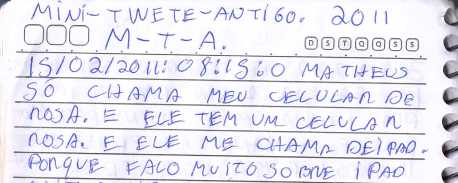 MINI-TWETE-ANTIGO. 2011
M-T-A.
D S T Q Q S S
15/02/2011: 08:15:0 MATHEUS
SO CHAMA MEU CELULAR DE
ROSA. E ELE TEM UM CELULAR
ROSA. E ELE ME CHAMA DEIPAD.
PORQUE FALO MUITO SOBRE IPAD